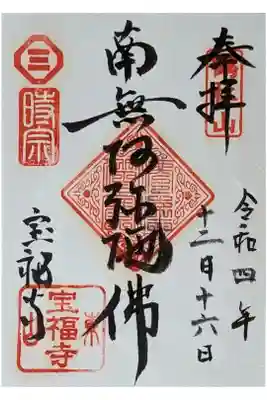 奉拝
令和四年
十二月十六日
南無阿弥陀佛
宝福寺
三
時宗
宝福寺